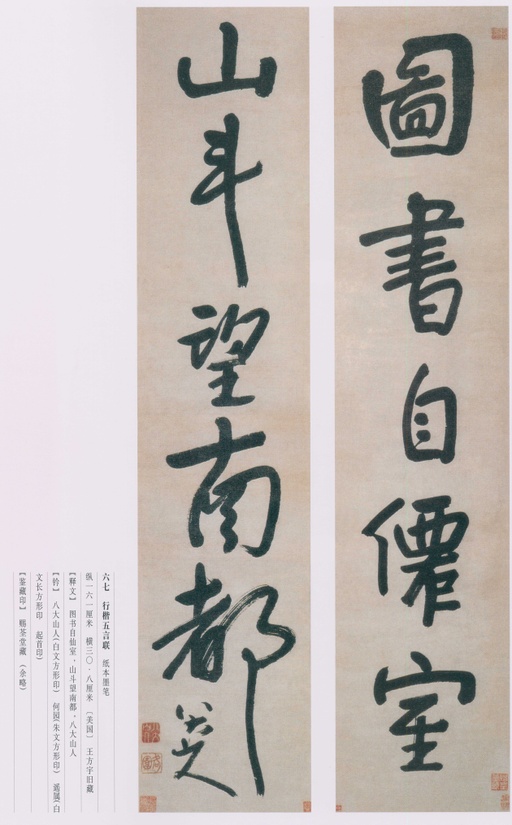 圖書自僊室
山斗望南都
八大山人
六七 行楷五言联 纸本墨笔
纵一六一厘米 横三〇·八厘米 〔美国〕 王方宇旧藏
【释文】 图书自仙室，山斗望南都，八大山人
【钤】 八大山人(白文方形印) 何园(朱文方形印) 遥属(白
文长方形印 起首印)
【鉴藏印】 赐茶堂藏 (余略)